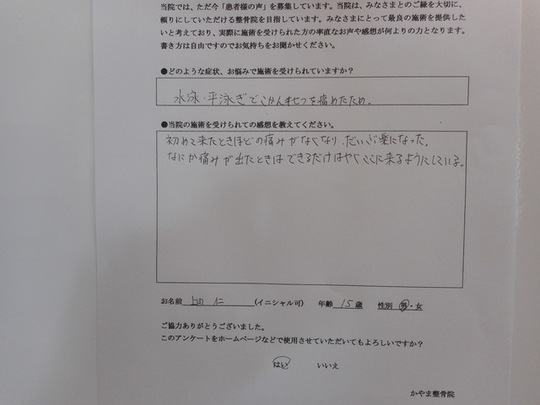 当院では、ただ今「患者様の声」を募集しています。当院は、みなさまとのご縁を大切に、
頼りにしていただける整骨院を目指しています。みなさまにとって最良の施術を提供した
いと考えており、実際に施術を受けられた方の率直なお声や感想が何よりの力となります。
書き方は自由ですのでお気持ちをお聞かせください。
●どのような症状、お悩みで施術を受けられていますか？
水泳・平泳ぎでこかんせつを痛めたため。
●当院の施術を受けられての感想を教えてください。
初めて来たときほどの痛みがなくなり、だいぶ楽になった。
なにか痛みが出たときはできるだけはやくここに来るようにしている。
お名前 (イニシャル可) 年齢 15歳 性別 男・女
ご協力ありがとうございました。
このアンケートをホームページなどで使用させていただいてもよろしいですか？
はい いいえ
かやま整骨院